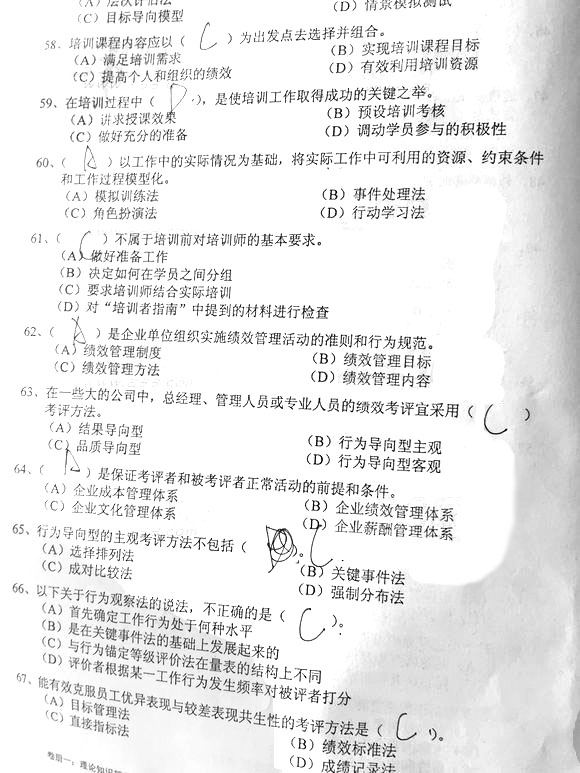 (A) 层次评估法
(D) 情景模拟测试
(C) 目标导向模型
58、培训课程内容应以( C )为出发点去选择并组合。
(A) 满足培训需求 (B) 实现培训课程目标
(C) 提高个人和组织的绩效 (D) 有效利用培训资源
59、在培训过程中( D ),是使培训工作取得成功的关键之举。
(A) 讲求授课效果 (B) 预设培训考核
(C) 做好充分的准备 (D) 调动学员参与的积极性
60、( A )以工作中的实际情况为基础,将实际工作中可利用的资源、约束条件
和工作过程模型化。
(A) 模拟训练法 (B) 事件处理法
(C) 角色扮演法 (D) 行动学习法
61、( C )不属于培训前对培训师的基本要求。
(A) 做好准备工作
(B) 决定如何在学员之间分组
(C) 要求培训师结合实际培训
(D) 对“培训者指南”中提到的材料进行检查
62、( A )是企业单位组织实施绩效管理活动的准则和行为规范。
(A) 绩效管理制度 (B) 绩效管理目标
(C) 绩效管理方法 (D) 绩效管理内容
63、在一些大的公司中,总经理、管理人员或专业人员的绩效考评宜采用( C )
考评方法。
(A) 结果导向型 (B) 行为导向型主观
(C) 品质导向型 (D) 行为导向型客观
64、( )是保证考评者和被考评者正常活动的前提和条件。
(A) 企业成本管理体系 (B) 企业绩效管理体系
(C) 企业文化管理体系 (D) 企业薪酬管理体系
65、行为导向型的主观考评方法不包括( )。
(A) 选择排列法 (B) 关键事件法
(C) 成对比较法 (D) 强制分布法
66、以下关于行为观察法的说法,不正确的是( C )。
(A) 首先确定工作行为处于何种水平
(B) 是在关键事件法的基础上发展起来的
(C) 与行为锚定等级评价法在量表的结构上不同
(D) 评价者根据某一工作行为发生频率对被评者打分
67、能有效克服员工优异表现与较差表现共生性的考评方法是( C )。
(A) 目标管理法 (B) 绩效标准法
(C) 直接指标法 (D) 成绩记录法
卷册一:理论知识